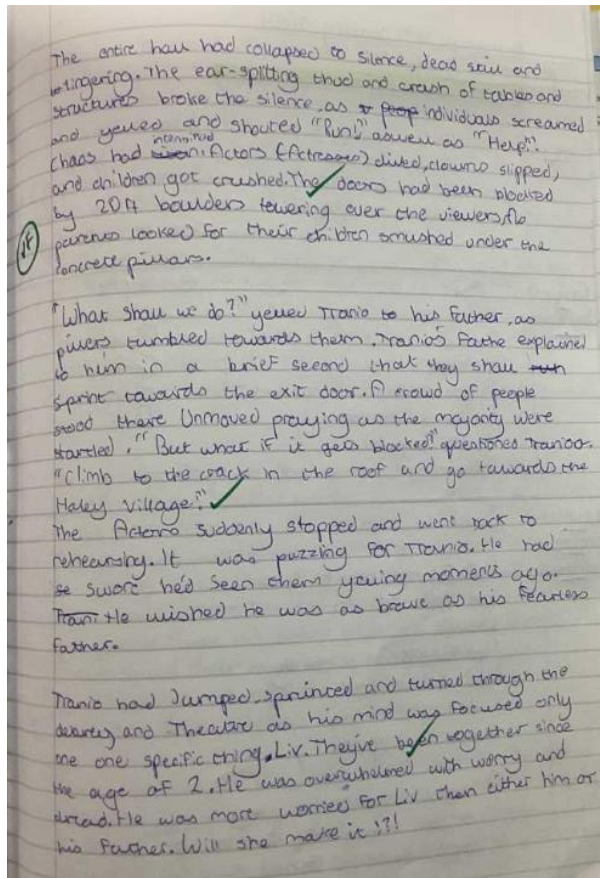 The entire hall had collapsed to silence, dead still and
lingering. The ear-splitting thud and crash of tables and
structures broke the silence, as individuals screamed
and yelled and shouted "Run!" aswell as "Help"!
Chaos had intensified. Actors (Actresses) dived, clowns slipped,
and children got crushed. The doors had been blocked
by 20ft boulders towering over the viewers,
parents looked for their children smushed under the
concrete pillars.
"What shall we do?" yelled Tranio to his father, as
pillers tumbled towards them. Tranio's Fathe explained
to him in a brief second that they shall
sprint towards the exit door. A crowd of people
stood there Unmoved praying as the majority were
startled. "But what if it gets blocked!" questioned Tranio.
"Climb to the crack in the roof and go towards the
Haley Village!"
The Actors suddenly stopped and went back to
rehearsing. It was puzzing for Tranio. He had
swore he'd seen them yelling moments ago.
He wished he was as brave as his fearless
father.
Tranio had Jumped, sprinted and turned through the
and Theatre as his mind was focused only
one one specific thing, Liv. They've been together since
the age of 2. He was overwhelmed with worry and
dread. He was more worried for Liv then either him or
his father. Will she make it!?!